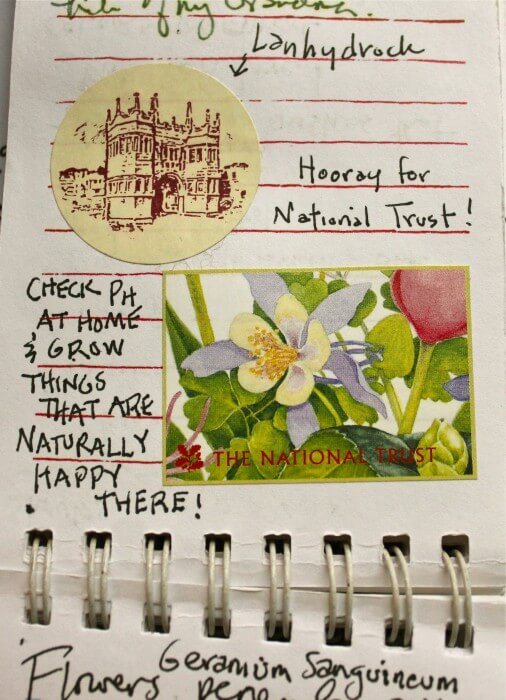 of my
Lanhydrock
Hooray for
National Trust!
CHECK PH
AT HOME
& GROW
THINGS
THAT ARE
NATURALLY
HAPPY
THERE!
THE NATIONAL TRUST
Geranium Sanguineum
Flowers